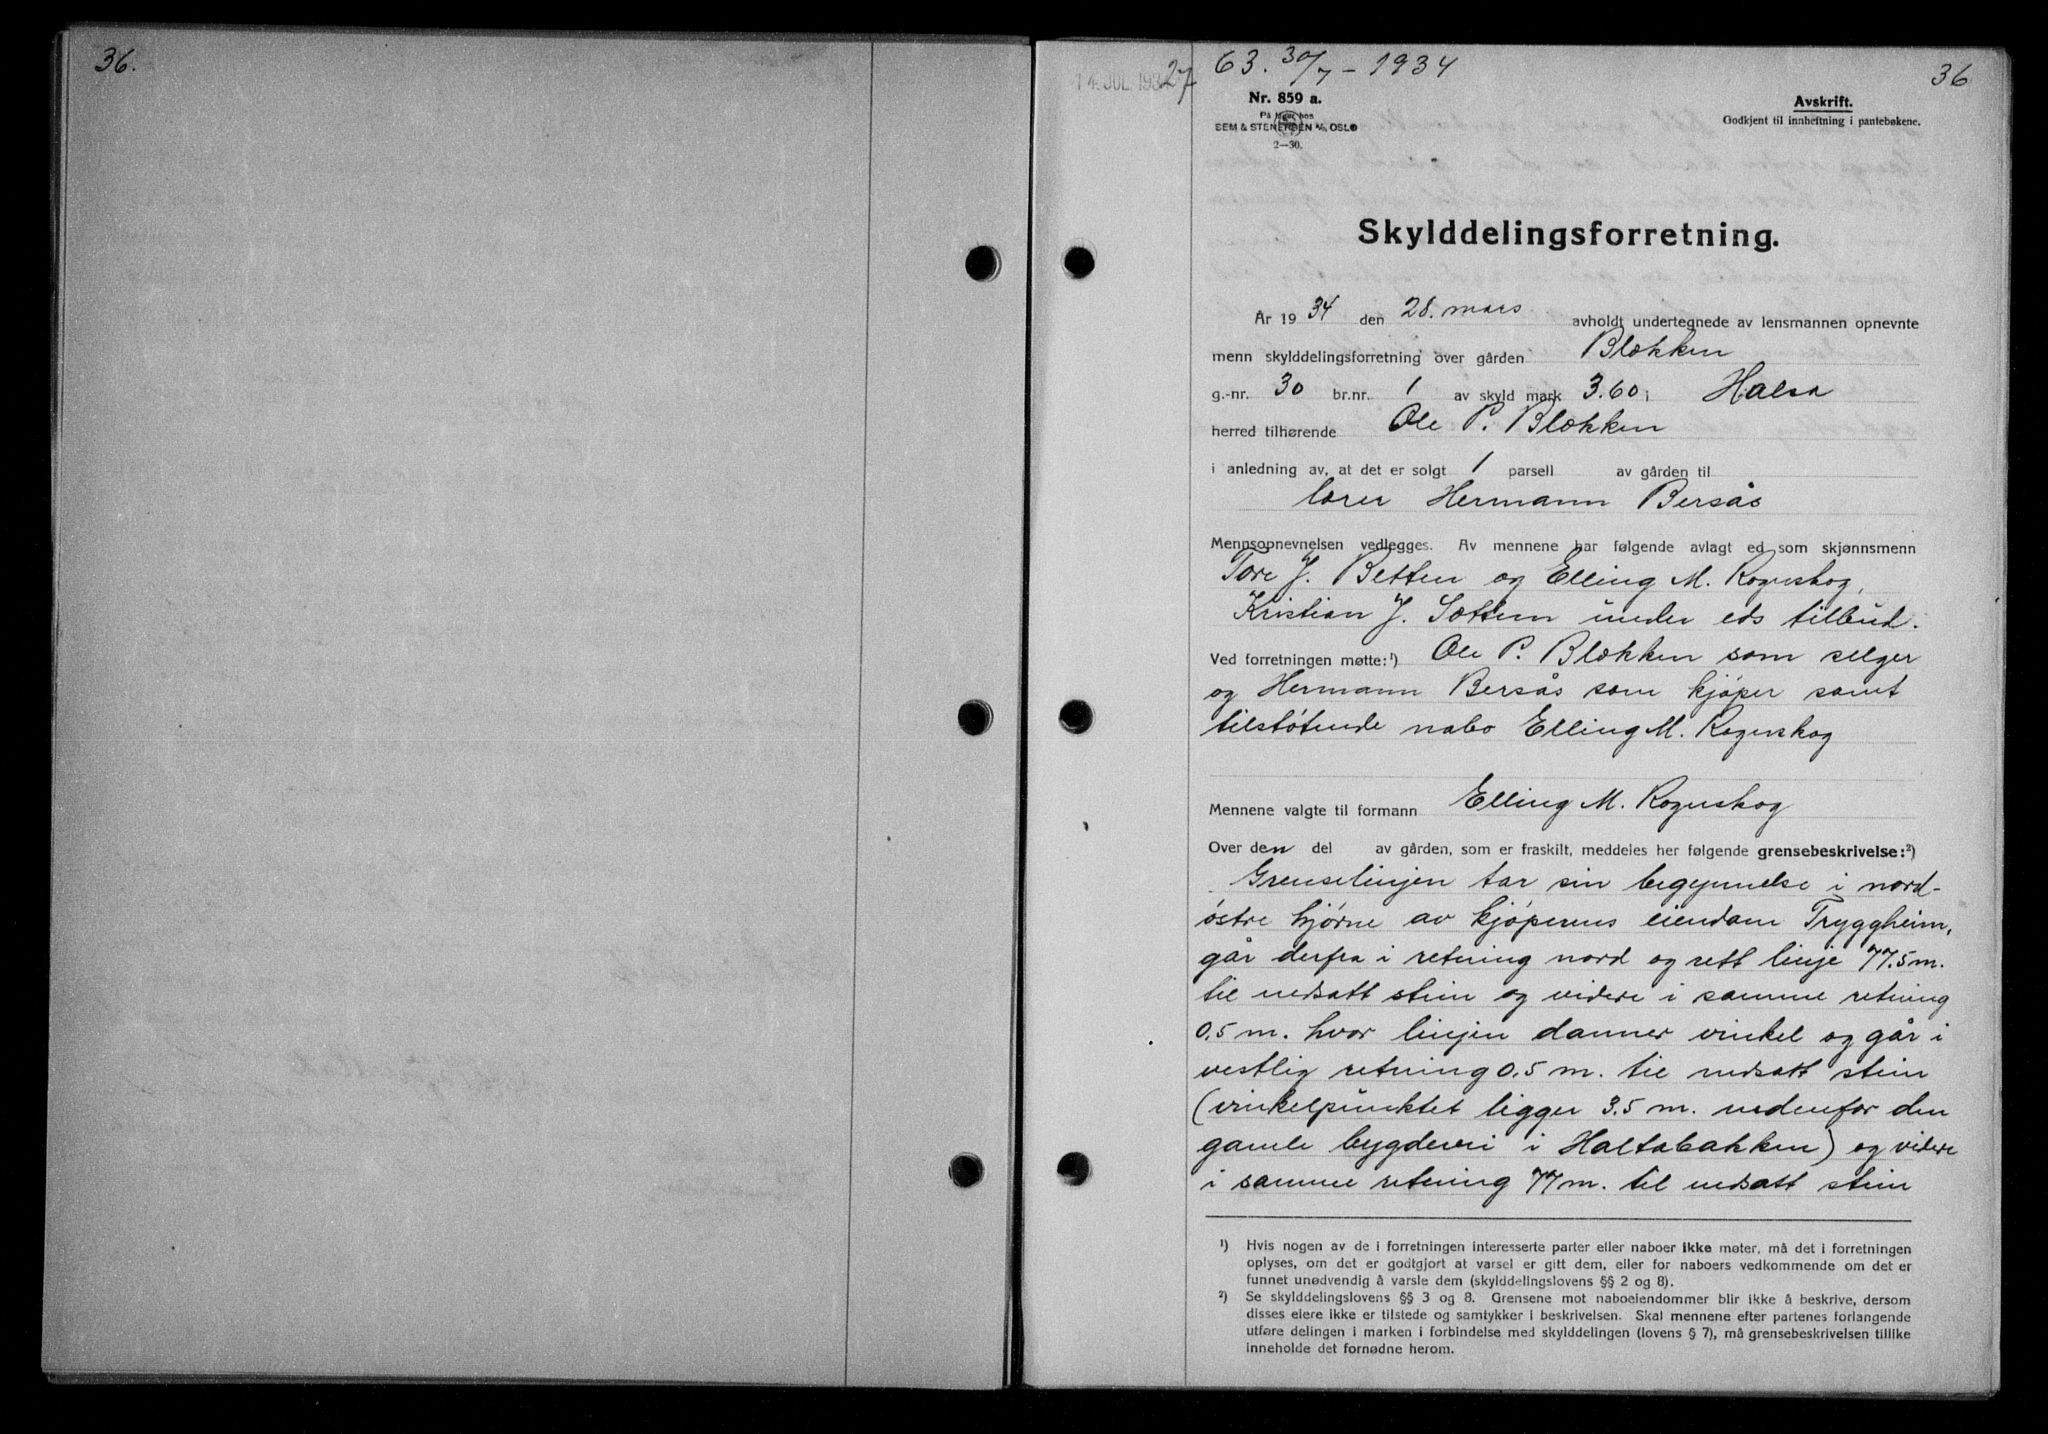 36.
14. JUL. 193
27
63. 30/7 - 1934
36
Nr. 859 a.
På lager hos
SEM & STENERSEN A/S, OSLO
2—30.
Avskrift.
Godkjent til innheftning i pantebøkene.
Skylddelingsforretning.
År 1934 den 28. mars avholdt undertegnede av lensmannen opnevnte
menn skylddelingsforretning over gården Blekken
g.-nr. 30 br.nr. 1 av skyld mark 3.60 i Halsa
herred tilhørende Ole P. Blekken
i anledning av, at det er solgt 1 parsell av gården til
lærer Hermann Bersås
Mennsopnevnelsen vedlegges. Av mennene har følgende avlagt ed som skjønnsmenn
Tore J. Betten og Elling M. Rognskog,
Kristian J. Settem under eds tilbud.
Ved forretningen møtte:¹) Ole P. Blekken som selger
og Hermann Bersås som kjøper samt
tilstøtende nabo Elling M. Rognskog
Mennene valgte til formann Elling M. Rognskog
Over den del av gården, som er fraskilt, meddeles her følgende grensebeskrivelse:²)
Grenselinjen tar sin begynnelse i nord-
østre hjørne av kjøperens eiendom Tryggheim,
går derfra i retning nord og rett linje 77.5 m.
til nedsatt stein og videre i samme retning
0,5 m. hvor linjen danner vinkel og går i
vestlig retning 0,5 m. til nedsatt stein
(vinkelpunktet ligger 3.5 m. nedenfor den
gamle bygdevei i Haltabakken) og videre
i samme retning 77 m. til nedsatt stein
¹) Hvis nogen av de i forretningen interesserte parter eller naboer ikke møter, må det i forretningen
oplyses, om det er godtgjort at varsel er gitt dem, eller for naboers vedkommende om det er
funnet unødvendig å varsle dem (skylddelingslovens §§ 2 og 8).
²) Se skylddelingslovens §§ 3 og 8. Grensene mot naboeiendommer blir ikke å beskrive, dersom
disses eiere ikke er tilstede og samtykker i beskrivelsen. Skal mennene efter partenes forlangende
utføre delingen i marken i forbindelse med skylddelingen (lovens § 7), må grensebeskrivelsen tillike
inneholde det fornødne herom.